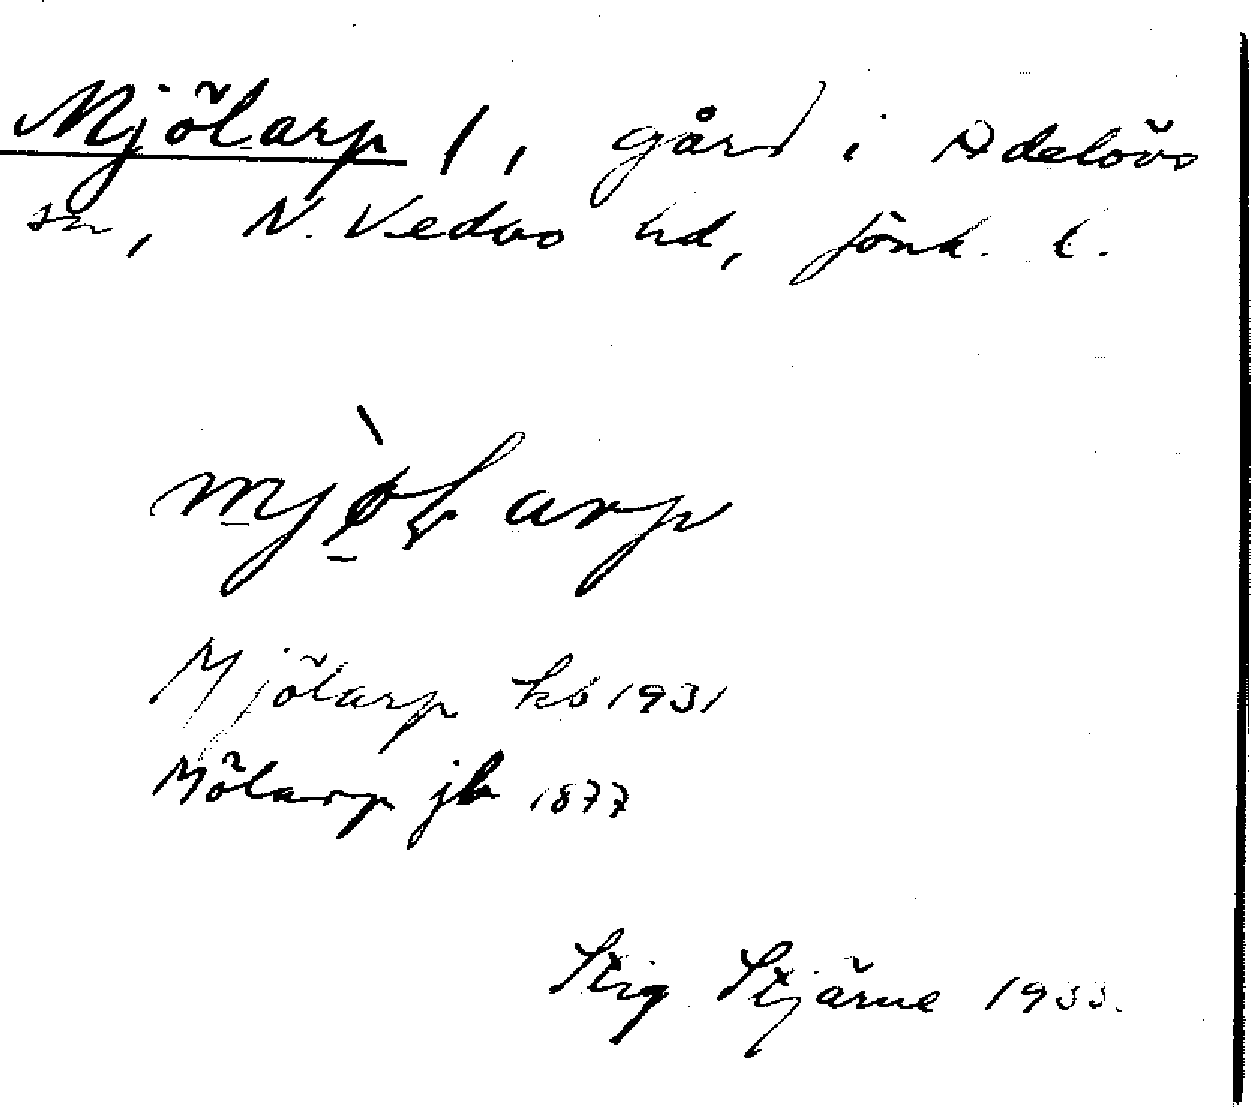 Mjölarp 1, gård i Adelövs
sn, N. Vedbo hd, Jönk. l.
mjø̀l arp
Mjölarp kb 1931
Mölarp jb 1877
Stig Stjärne 1933.